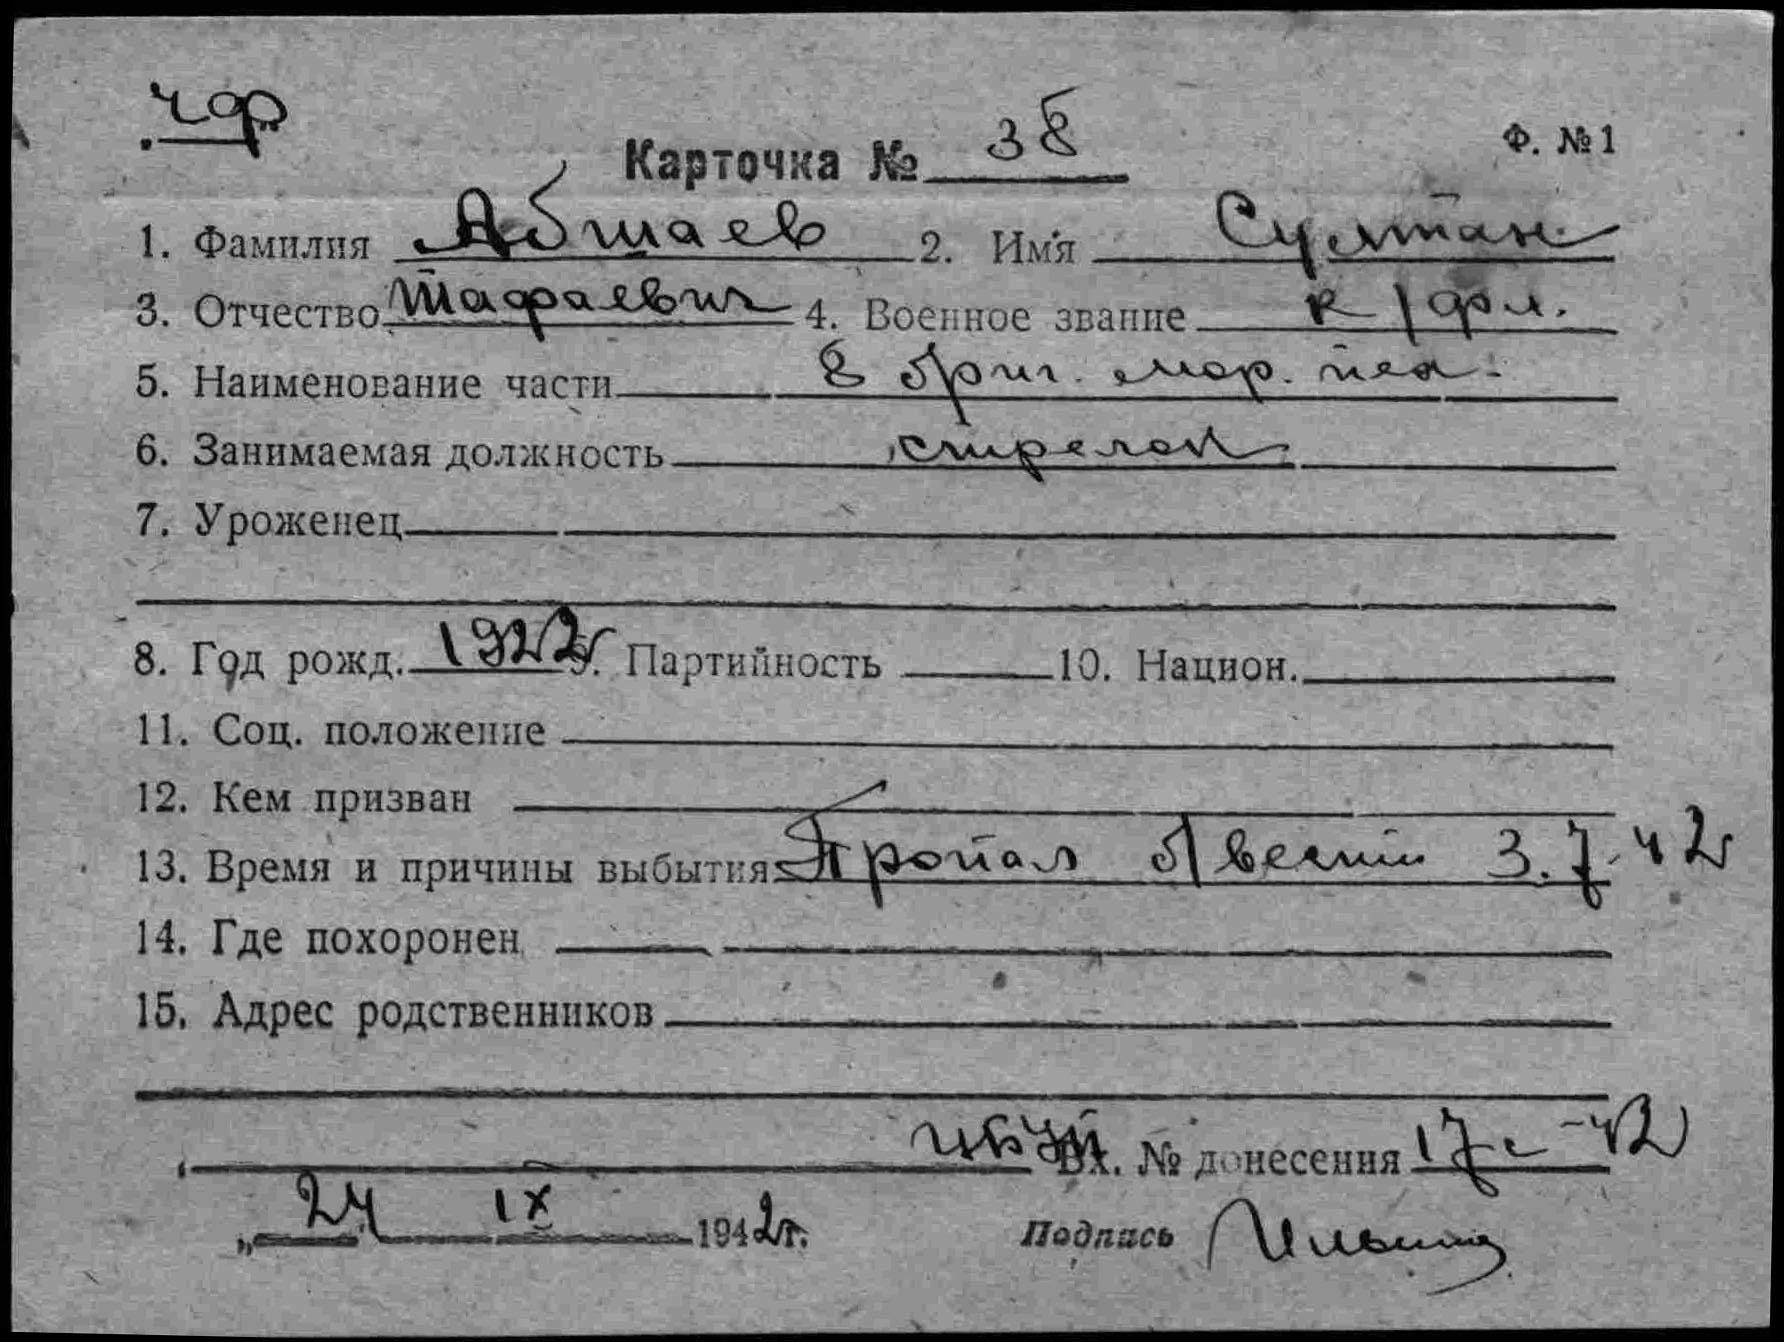 чф
Карточка № 38
Ф. № 1
1. Фамилия Абшаев 2. Имя Султан
3. Отчество Тафаевич 4. Военное звание к/фл.
5. Наименование части 8 бриг. мор. пех.
6. Занимаемая должность стрелок
7. Уроженец
8. Год рожд. 1922 9. Партийность 10. Национ.
11. Соц. положение
12. Кем призван
13. Время и причины выбытия Пропал б/вести 3.7.42
14. Где похоронен
15. Адрес родственников
Вх. № донесения 17с-42
„24 IX 1942г. Подпись